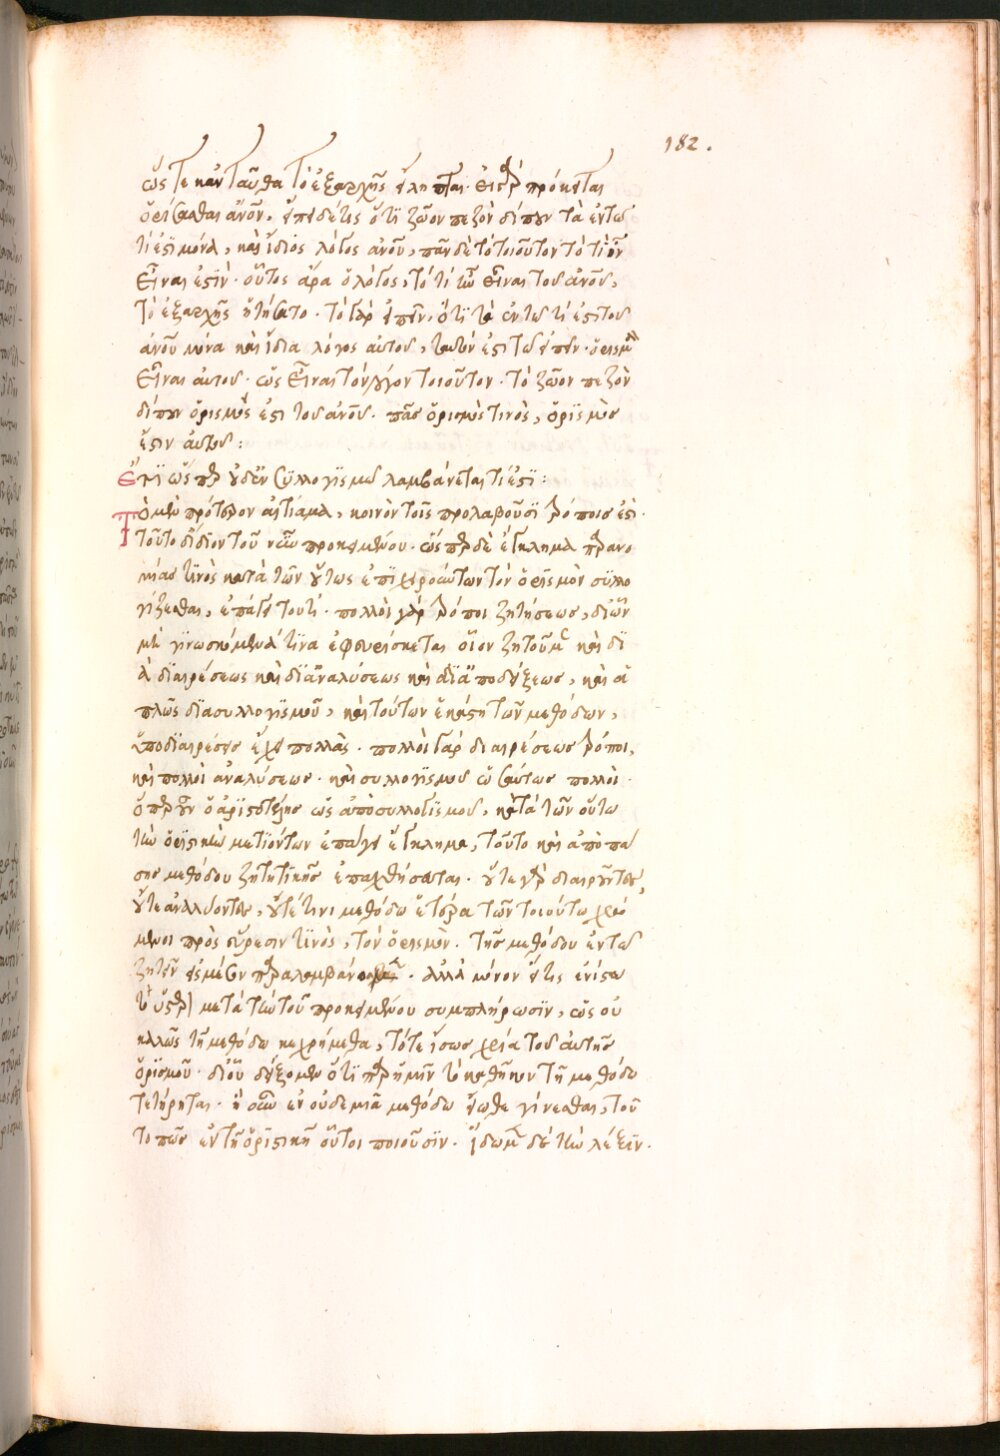 182.
ὥστε κἀνταῦθα τὸ ἐξαρχῆς εἴληπται. εἰ γὰρ πρόκειται
ὁρίσασθαι ἄνον, εἴπη δέ τις ὅτι ζῶον πεζὸν δίπουν τὰ ἐν τῶ
τί ἐστι μόνα, καὶ ἴδιος λόγος ἀνου, πᾶν δὲ τὸ τοιοῦτον τὸ τί ἦν
εἶναι ἐστὶν. οὗτος ἄρα ὁ λόγος, τὸ τί ἦν εἶναι τοῦ ἀνου,
τὸ ἐξαρχῆς ἠτήσατο. τὸ γὰρ εἰπεῖν, ὅτι τὰ ἐν τῶ τί ἐστι τοῦ
ἀνου μόνα καὶ ἴδια λόγος αὐτοῦ, ταυτόν ἐστι τῶ εἰπεῖν. ὁρισμὸν
εἶναι αὐτοῦ. ὡς εἶναι τὸν λόγον τοιοῦτον. τὸ ζῶον πεζὸν
δίπουν ὁρισμός ἐστι τοῦ ἀνου. πᾶς ὁρισμὸς τινὸς, ὁρισμὸς
ἐστιν αὐτοῦ:
Ἔτι ὥσπερ οὐδὲν συλλογισμῶ λαμβάνεται τί ἐστι:
Τὸ μὲν πρότερον αἰτίαμα, κοινὸν τοῖς προλαβοῦσι τρόποις ἐστί.
τοῦτο δ' ἴδιον τοῦ νῦν προκειμένου. ὥσπερ δὲ ἔγκλημα παρανο
μίας τινὸς κατὰ τῶν οὕτως ἐπιχειρούντων τὸν ὁρισμὸν συλλο
γίζεσθαι, ἐπάγει τουτί. πολλοὶ γὰρ τρόποι ζητήσεως, δι' ὧν
μὴ γινωσκόμενά τινα ἐφευρίσκεται οἷον ζητοῦμεν καὶ δι
ὰ διαιρέσεως καὶ δι' ἀναλύσεως καὶ δι' ἀποδείξεως, καὶ ἁ
πλῶς διὰ συλλογισμοῦ, καὶ τούτων ἑκάστη τῶν μεθόδων,
ὑποδιαιρέσεις ἔχει πολλὰς. πολλοὶ γὰρ διαιρέσεως τρόποι,
καὶ πολλοὶ ἀναλύσεως. καὶ συλλογισμοῦ ὡσαύτως πολλοί.
ὅπερ οὖν ὁ ἀριστοτέλης ὡς ἀπὸ συλλογισμοῦ, κατὰ τῶν οὕτω
τὴν ὁριστικὴν μετιόντων ἐπάγει ἔγκλημα, τοῦτο καὶ ἀπὸ πά
σης μεθόδου ζητητικῆς ἐπαχθήσεται. οὔτε γὰρ διαιροῦντες,
οὔτε ἀναλύοντες, οὔτέ τινι μεθόδω ἑτέρα τῶν τοιούτω χρώ
μενοι πρὸς εὕρεσιν τινὸς, τὸν ὁρισμὸν. τῆς μεθόδου ἐν τῶ
ζητεῖν
μετὰ τὴν τοῦ προκειμένου συμπλήρωσιν, ὡς οὐ
καλῶς τῆ μεθόδω κεχρήμεθα, τότε ἴσως χρεία τοῦ αὐτῆς
ὁρισμοῦ. δι' οὗ δείξομεν ὅτι παρ' ἡμῖν τὸ καθῆκον τῆ μεθόδω
τετήρηται. ἢ οὖν ἐν οὐδεμιᾶ μεθόδω εἴωθε γίνεσθαι, τοῦ
το πῶς ἐν τῆ ὁριστικῆ οὗτοι ποιοῦσιν. ἴδωμεν δὲ τὴν λέξιν.